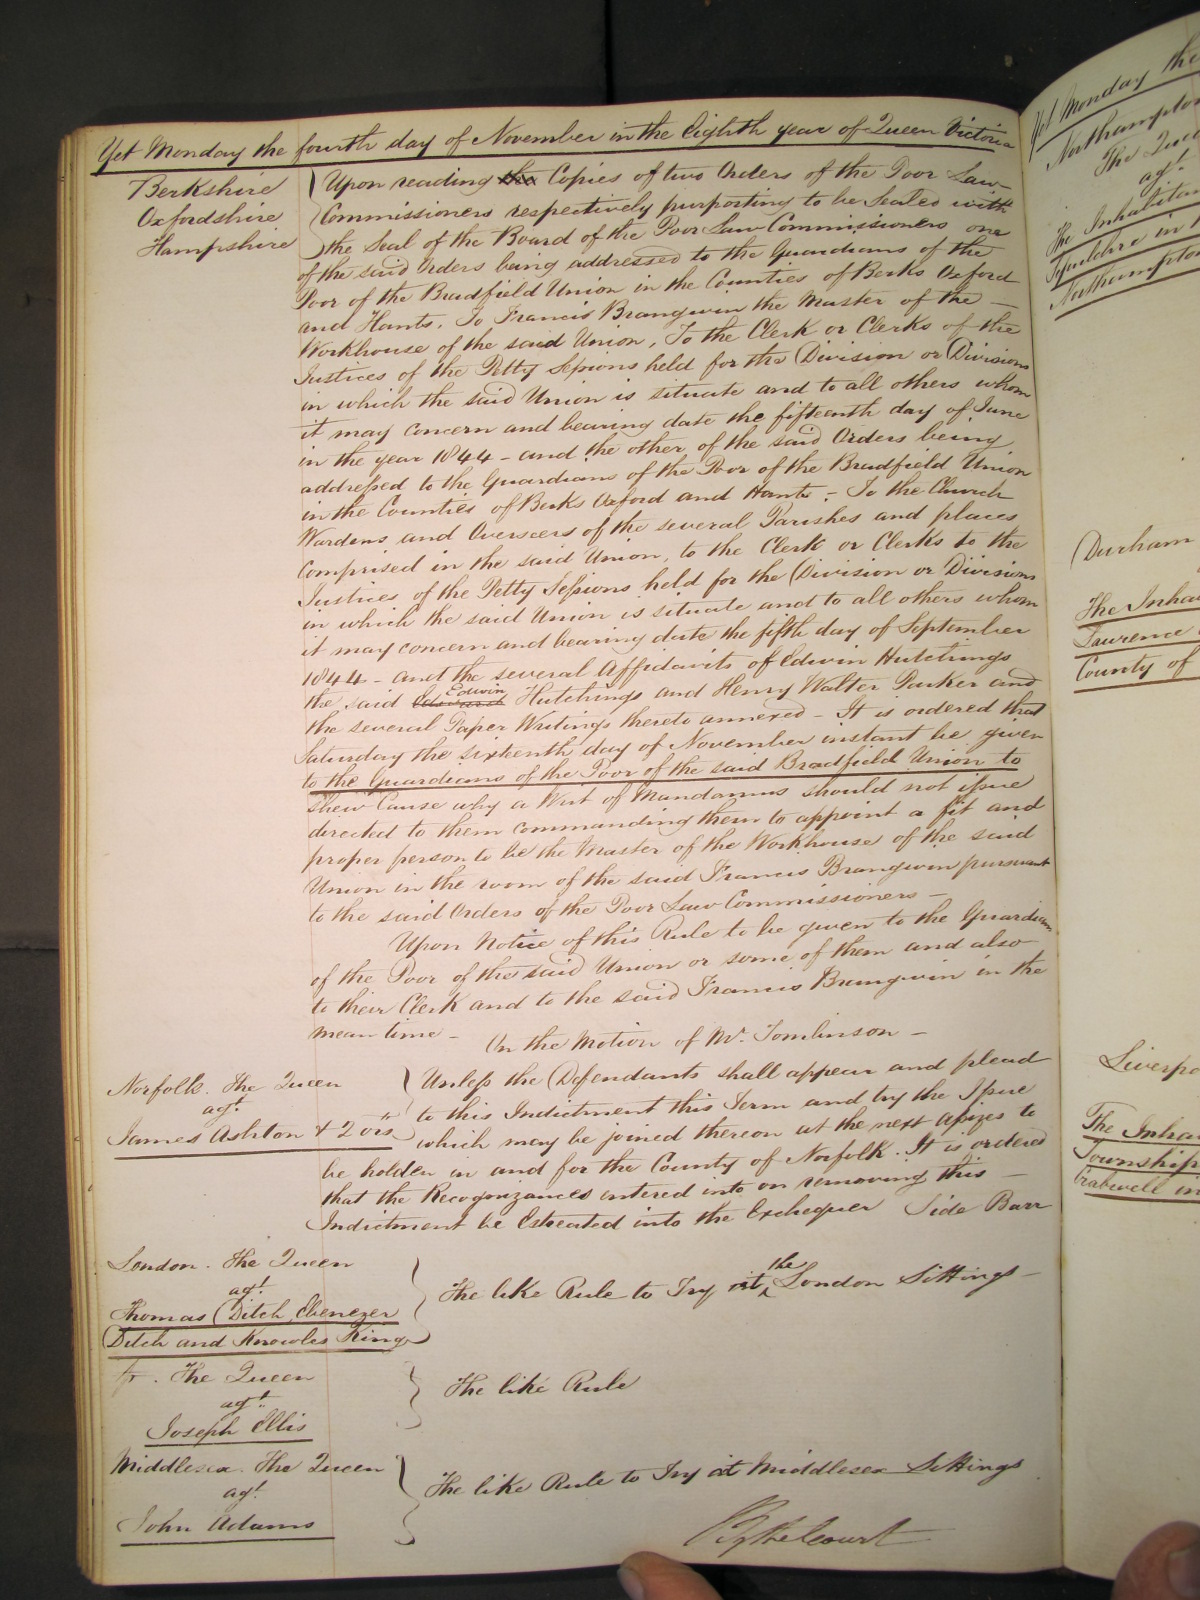 Yet Monday the fourth day of November in the Eighth year of Queen Victoria
Berkshire
Oxfordshire
Hampshire
Upon reading the Copies of two Orders of the Poor Law
Commissioners respectively purporting to be Sealed with
the Seal of the Board of the Poor Law Commissioners one
of the said Orders being addressed to the Guardians of the
Poor of the Bradfield Union in the Counties of Berks Oxford
and Hants, To Francis Brangwin the Master of the
Workhouse of the said Union, To the Clerk or Clerks of the
Justices of the Petty Sessions held for the Division or Divisions
in which the said Union is situate and to all others whom
it may concern and bearing date the fifteenth day of June
in the year 1844 - and the other of the said Orders being
addressed to the Guardians of the Poor of the Bradfield Union
in the Counties of Berks Oxford and Hants - To the Church
Wardens and Overseers of the several Parishes and places
comprised in the said Union, to the Clerk or Clerks to the
Justices of the Petty Sessions held for the Division or Divisions
in which the said Union is situate and to all others whom
it may concern and bearing date the fifth day of September
1844 - and the several Affidavits of Edwin Hutchings
the said Edwin Hutchings and Henry Walter Parker and
the several Paper Writings thereto annexed - It is ordered that
Saturday the sixteenth day of November instant be given
to the Guardians of the Poor of the said Bradfield Union to
shew Cause why a Writ of Mandamus should not issue
directed to them commanding them to appoint a fit and
proper person to be the Master of the Workhouse of the said
Union in the room of the said Francis Brangwin pursuant
to the said Orders of the Poor Law Commissioners -
Upon Notice of this Rule to be given to the Guardians
of the Poor of the said Union or some of them and also
to their Clerk and to the said Francis Brangwin in the
mean time -
On the Motion of Mr. Tomlinson -
Norfolk. The Queen
agt.
James Ashton & 2 ors.
Unless the Defendants shall appear and plead
to this Indictment this Term and try the Issue
which may be joined thereon at the next Assizes to
be holden in and for the County of Norfolk. It is ordered
that the Recognizances entered into on removing this
Indictment be Estreated into the Exchequer Side Barr
London. The Queen
agt.
Thomas Ditch Ebenezer
Ditch and Knowles King
The like Rule to Try at the London Sittings -
The Queen
agt.
Joseph Ellis
The like Rule
Middlesex. The Queen
agt.
John Adams
The like Rule to Try at Middlesex Sittings
By the Court
Yet Monday the
Northampton
The Queen
agt.
The Inhabitan
in
Northampton
Durham
The Inha
County of
Liverpo
The Inha
Township
in